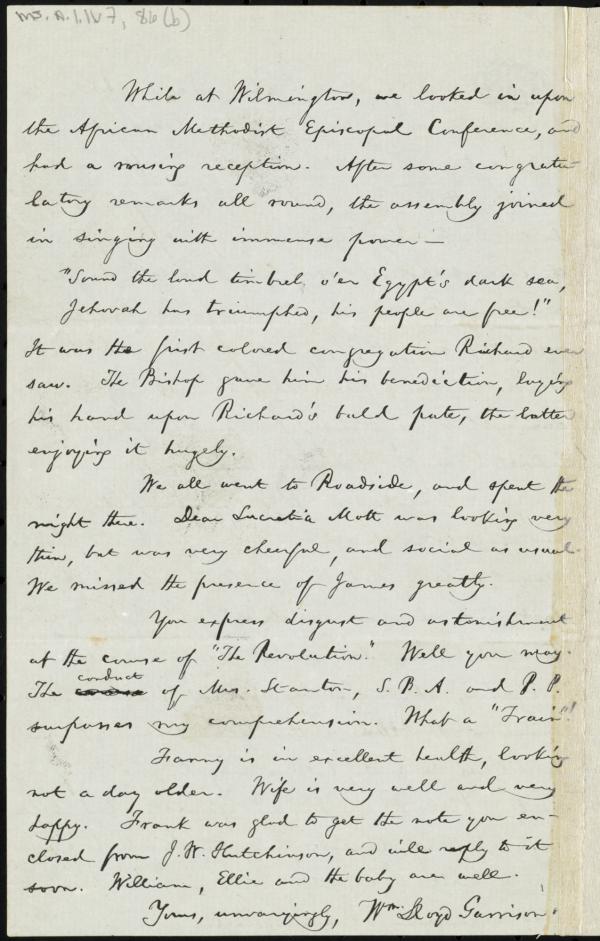 Ms. A.1.1 V.7, 86(b)
While at Wilmington, we looked in upon
the African Methodist Episcopal Conference, and
had a rousing reception. After some congratu-
latory remarks all round, the assembly joined
in singing with immense power —
"Sound the loud timbrel o'er Egypt's dark sea,
Jehovah has triumphed, his people are free!"
It was the first colored congregation Richard ever
saw. The Bishop gave him his benediction, laying
his hand upon Richard's bald pate, the latter
enjoying it hugely.
We all went to Roadside, and spent the
night there. Dear Lucretia Mott was looking very
thin, but was very cheerful, and social as usual.
We missed the presence of James greatly.
You express disgust and astonishment
at the course of "The Revolution." Well you may.
conduct
The course of Mrs. Stanton, S. B. A. and P. P.
surpasses my comprehension. What a "Train"!
Fanny is in excellent health, looking
not a day older. Wife is very well and very
happy. Frank was glad to get the note you en-
closed from J. W. Hutchinson, and will reply to it
soon. William, Ellie and the baby are well.
Yours, unvaryingly, Wm. Lloyd Garrison.